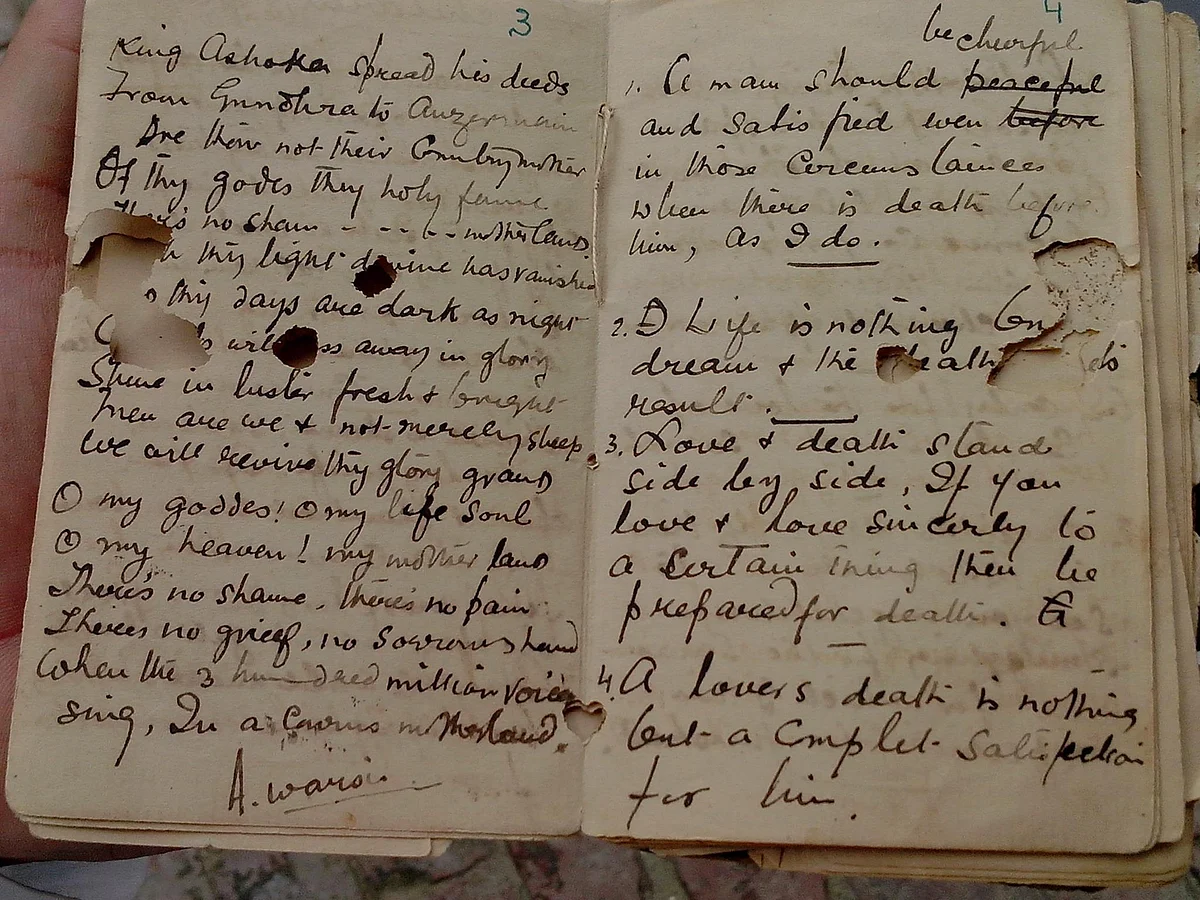 3
King Ashoka spread his deeds
From Gundhra to
Are thou not their Country mother
Of thy godes thy holy
There's no sham - - - - - motherland
thy light divine has vanished
thy days are dark as night
away in glory
Shine in luster fresh & bright
Men are we & not merely sheep
We will revive thy glory grand
O my goddes! O my life soul
O my heaven! my mother land
There's no shame, there's no pain
There's no grief, no sorrows hand
When the 3 hundred million voices
sing, In a motherland.
A. warsi
4
be cheerful
1. A man should peaceful
and satisfied even before
in those Circumstainces
when there is death before
him, as I do.
2. Life is nothing
dream & the death its
result.
3. Love & death stand
side by side, If you
love & love sincerly to
a certain thing then be
prepared for death.
4. A lovers death is nothing
but a Complet Satisfection
for him.